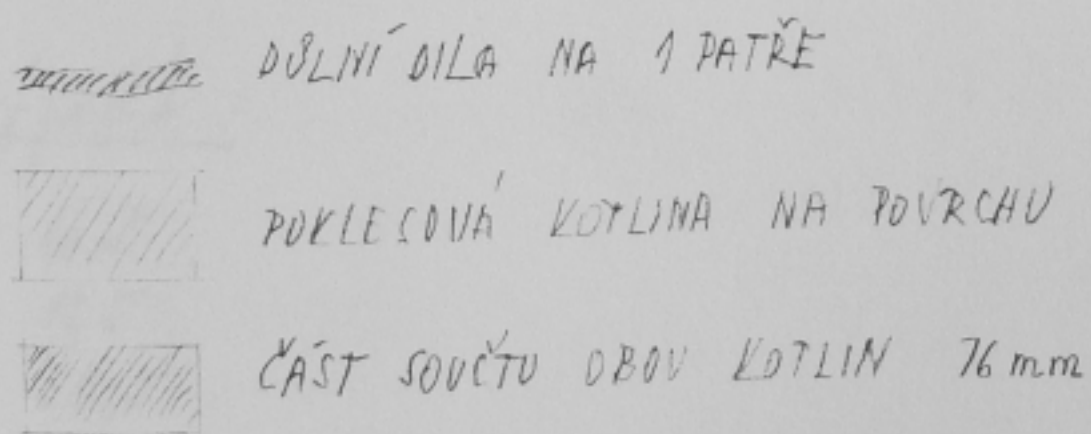 DŮLNÍ DÍLA NA 1 PATŘE
POKLESOVÁ KOTLINA NA POVRCHU
ČÁST SOUČTU OBOU KOTLIN 76 mm